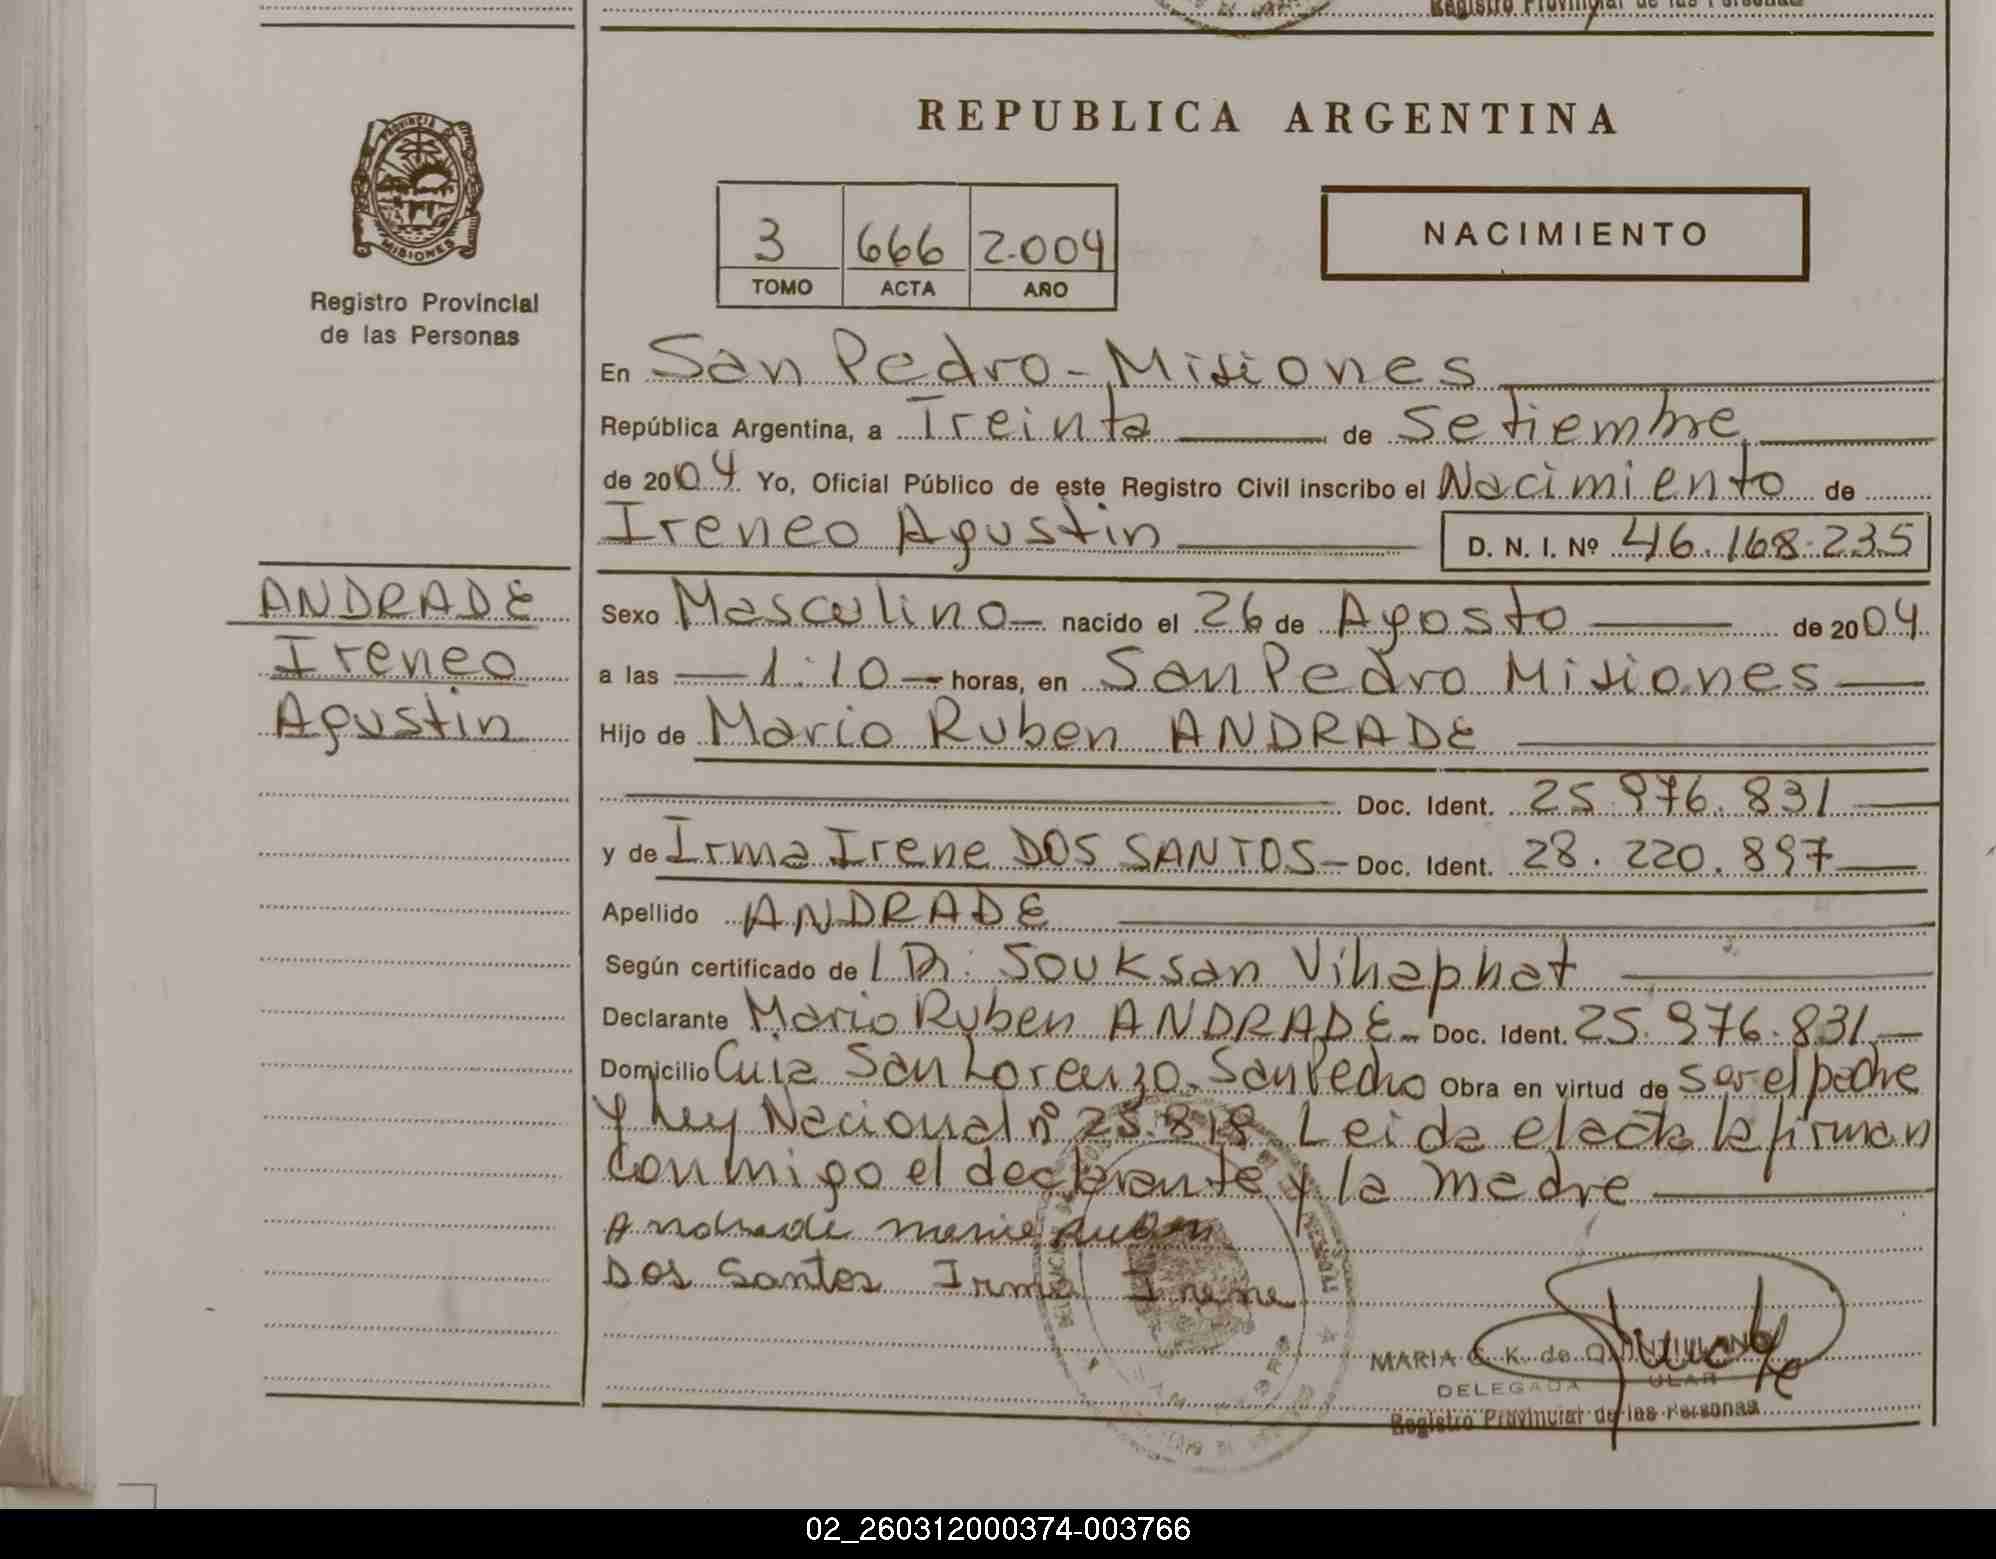 Registro Provincial de las Personas
REPUBLICA ARGENTINA
PROVINCIA DE
MISIONES
Registro Provincial
de las Personas
3 666 2.004
TOMO ACTA AÑO
NACIMIENTO
En San Pedro - Misiones
República Argentina, a Treinta de Setiembre
de 2004 Yo, Oficial Público de este Registro Civil inscribo el Nacimiento de
Ireneo Agustin D. N. I. Nº 46.168.235
ANDRADE
Ireneo
Agustin
Sexo Masculino nacido el 26 de Agosto de 2004
a las 1:10 horas, en San Pedro Misiones
Hijo de Mario Ruben ANDRADE
Doc. Ident. 25.976.831
y de Irma Irene DOS SANTOS Doc. Ident. 28.220.897
Apellido ANDRADE
Según certificado de Dr: Souksan Vihaphat
Declarante Mario Ruben ANDRADE Doc. Ident. 25.976.831
Domicilio Cuia San Lorenzo. San Pedro Obra en virtud de ser el padre
y Ley Nacional nº 25.818 Leida el acta la firman
conmigo el declarante y la madre
Andrade Mario Ruben
Dos Santos Irma Irene
MARIA K. de
DELEGADA TITULAR
Registro Provincial de las Personas
02_260312000374-003766